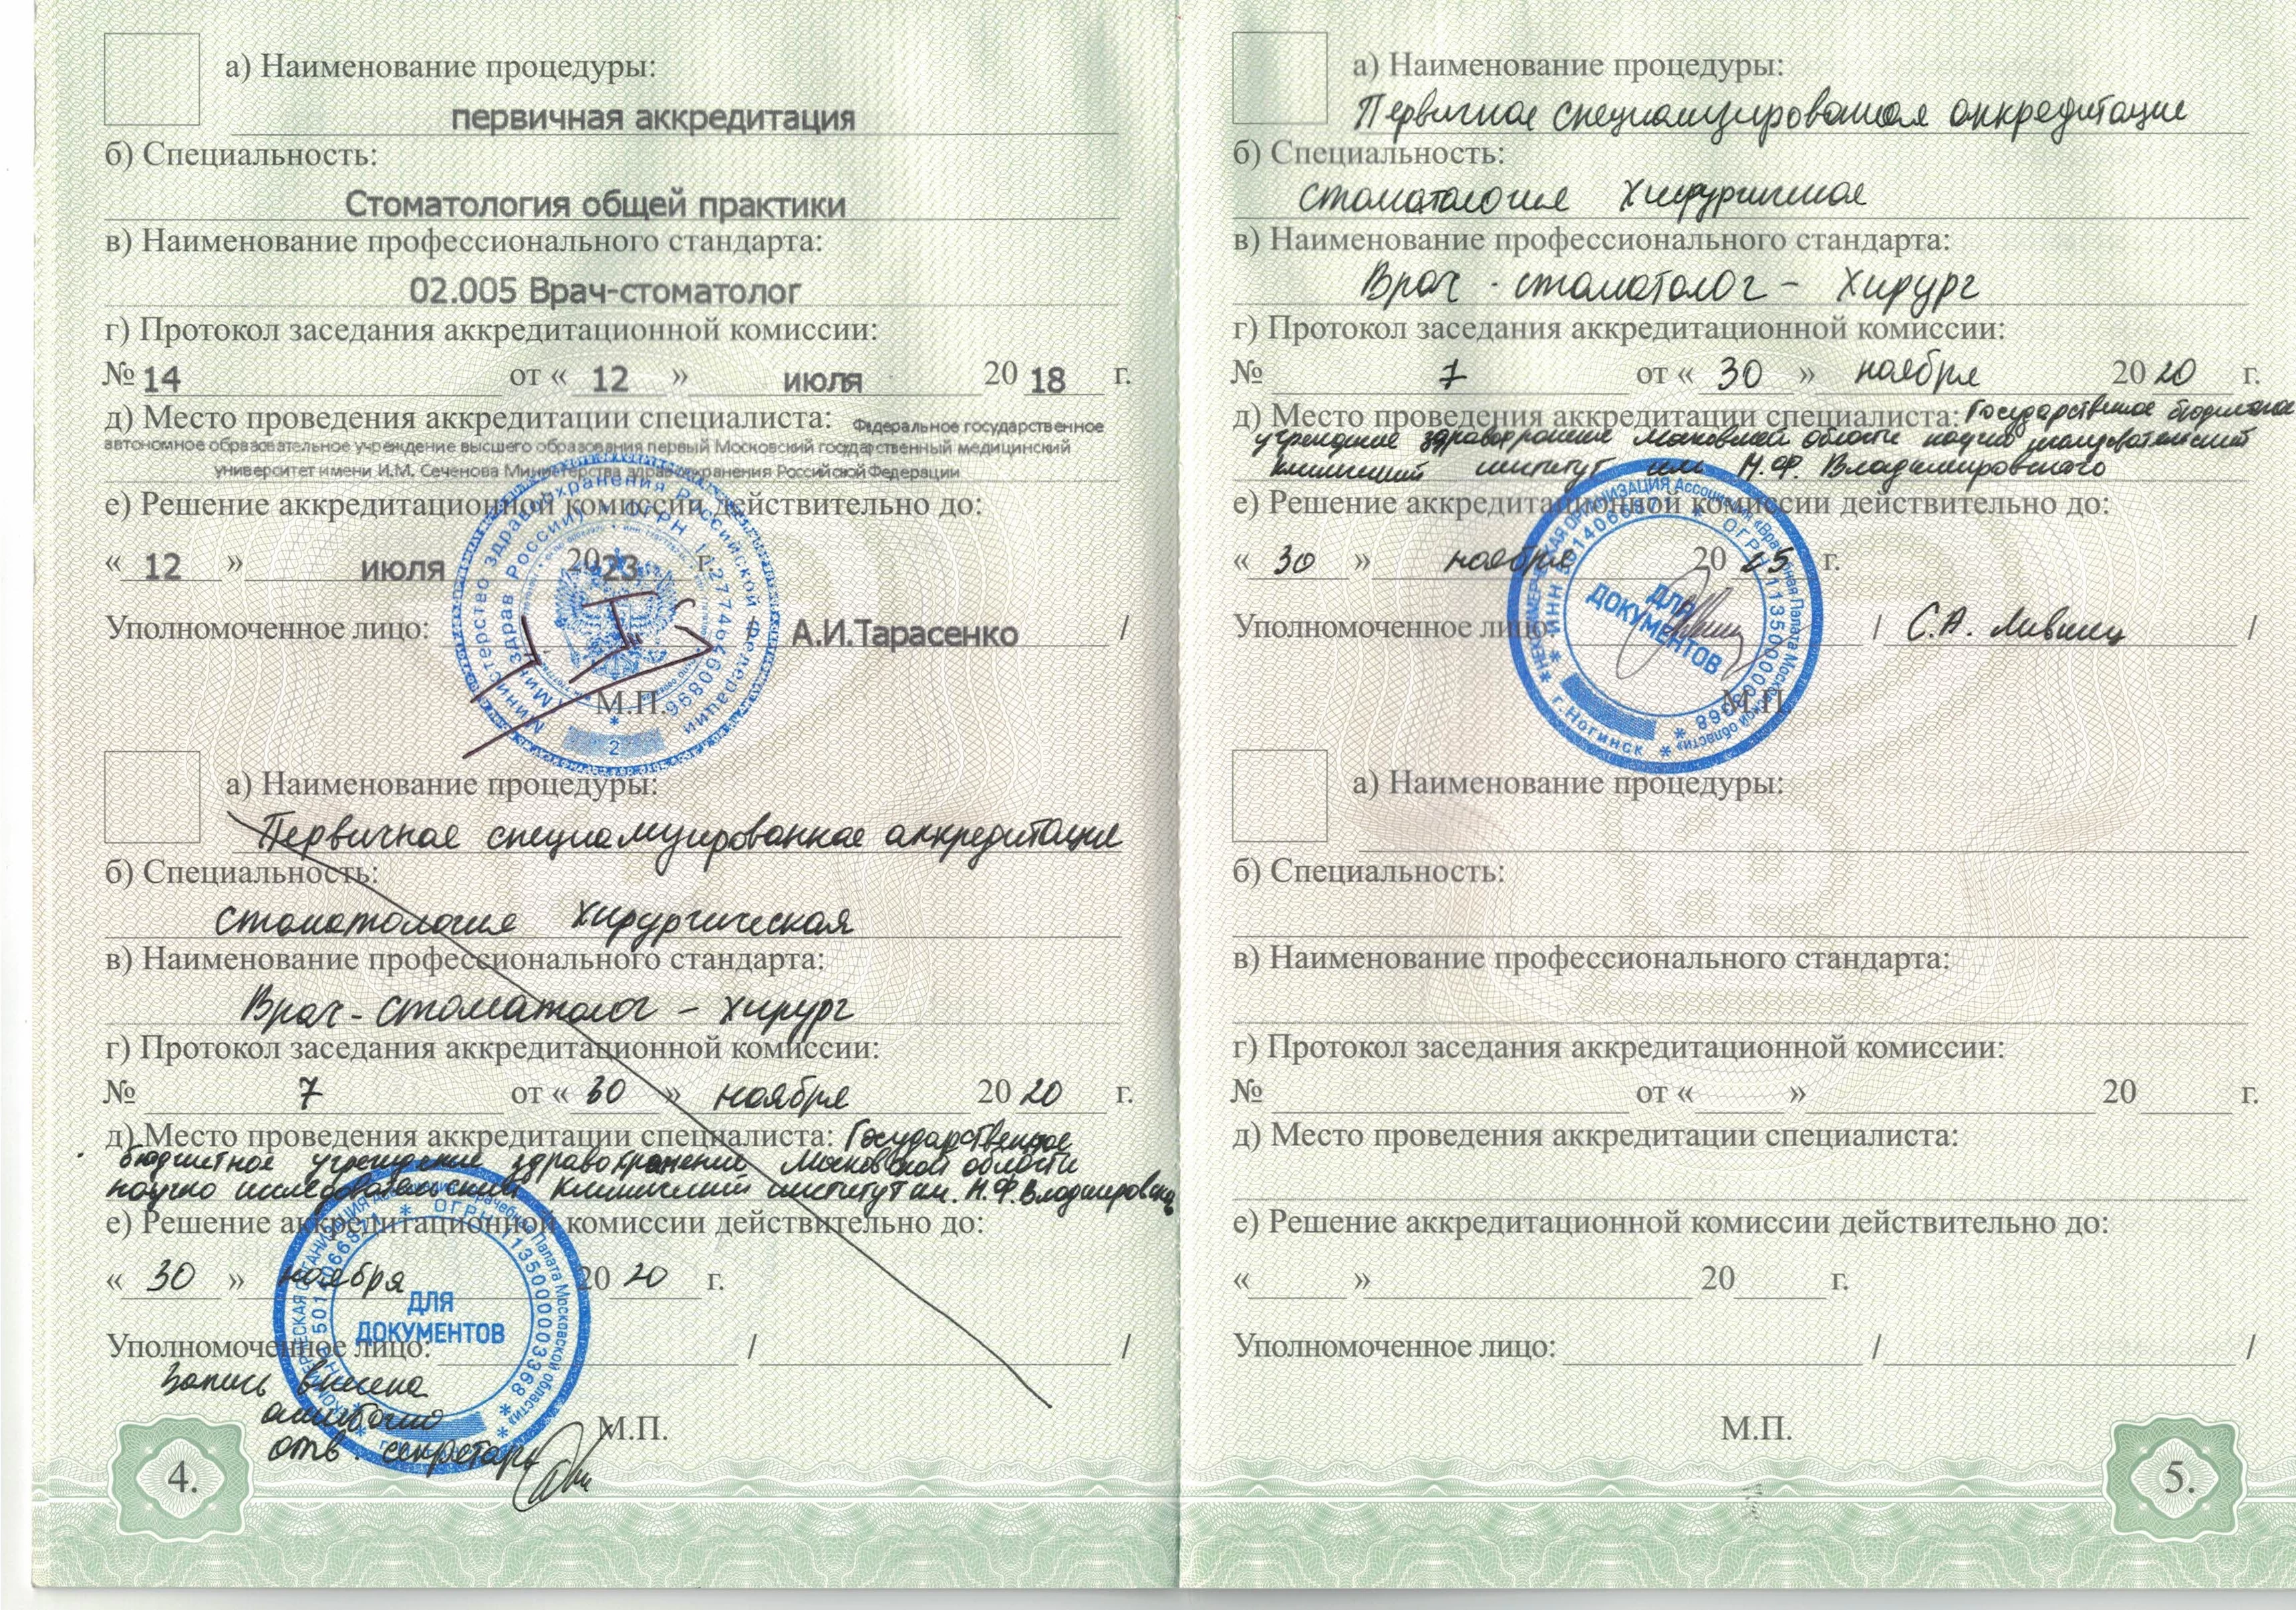 а) Наименование процедуры:
первичная аккредитация
б) Специальность:
Стоматология общей практики
в) Наименование профессионального стандарта:
02.005 Врач-стоматолог
г) Протокол заседания аккредитационной комиссии:
№ 14 от « 12 » июля 20 18 г.
д) Место проведения аккредитации специалиста: Федеральное государственное
автономное образовательное учреждение высшего образования первый Московский государственный медицинский
университет имени И.М. Сеченова Министерства здравоохранения Российской Федерации
е) Решение аккредитационной комиссии действительно до:
« 12 » июля 2023 г.
Уполномоченное лицо: / А.И.Тарасенко /
М.П.
Министерство здравоохранения Российской Федерации
(Минздрав России) * ОГРН 1127746460896
2
а) Наименование процедуры:
Первичная специализированная аккредитация
б) Специальность:
стоматология хирургическая
в) Наименование профессионального стандарта:
Врач-стоматолог - хирург
г) Протокол заседания аккредитационной комиссии:
№ 7 от « 30 » ноября 20 20 г.
д) Место проведения аккредитации специалиста: Государственное
бюджетное учреждение здравоохранения Московской области
научно исследовательский клинический институт им. М.Ф. Владимировско
е) Решение аккредитационной комиссии действительно до:
« 30 » ноября 20 20 г.
Уполномоченное лицо: / /
ДЛЯ
ДОКУМЕНТОВ
Запись внесена
ошибочно
отв. секретарь
М.П.
4.
а) Наименование процедуры:
Первичная специализированная аккредитация
б) Специальность:
стоматология хирургическая
в) Наименование профессионального стандарта:
Врач - стоматолог - хирург
г) Протокол заседания аккредитационной комиссии:
№ 7 от « 30 » ноября 20 20 г.
д) Место проведения аккредитации специалиста: Государственное бюджетное
учреждение здравоохранения Московской области научно исследовательский
клинический институт им М.Ф. Владимировского
е) Решение аккредитационной комиссии действительно до:
« 30 » ноября 20 25 г.
Уполномоченное лицо: / С.А. Лившиц /
М.П.
НЕКОММЕРЧЕСКАЯ ОРГАНИЗАЦИЯ Ассоциация «Врачебная Палата Московской области» * г. Ногинск *
ОГРН 1135000003368
ДЛЯ
ДОКУМЕНТОВ
а) Наименование процедуры:
б) Специальность:
в) Наименование профессионального стандарта:
г) Протокол заседания аккредитационной комиссии:
№ от « » 20 г.
д) Место проведения аккредитации специалиста:
е) Решение аккредитационной комиссии действительно до:
« » 20 г.
Уполномоченное лицо: / /
М.П.
5.